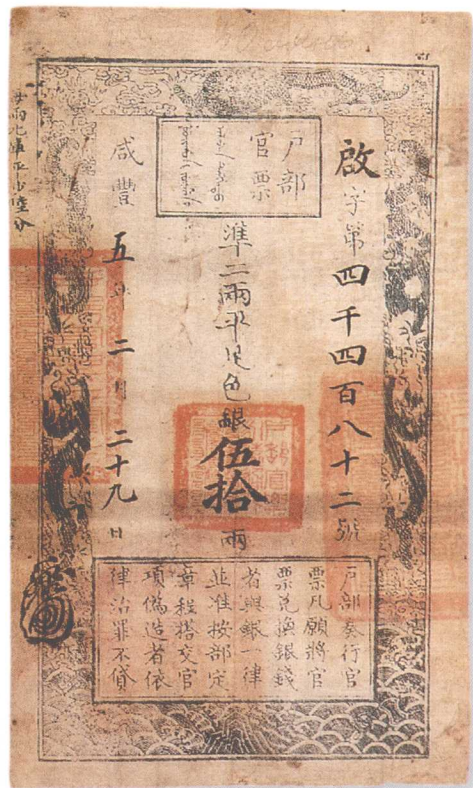 户部
官票
啟字第四千四百八十二號
準二兩平足色銀伍拾兩
咸豐五年二月二十九日
户部奏行官
票凡願將官
票兑換銀錢
者與銀一律
並准按部定
章程搭交官
項偽造者依
律治罪不貸